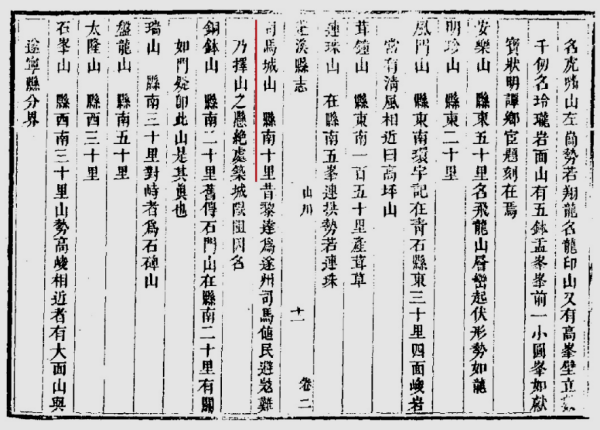 名虎嘴山左旁勢若翔龍名龍印山又有高峯壁立
千仞名玲瓏岩面山有五鉢盂峯峯前一小圓峯如獻
寶狀明譚鄉宦題刻在焉
安樂山　縣東五十里名飛龍山層巒起伏形勢如龍
明珍山　縣東二十里
風門山　縣東南環宇記在青石縣東三十里四面峻岩
常有清風相近曰高坪山
茸鍾山　縣東南一百五十里產茸草
連珠山　在縣南五峯連拱勢若連珠
溪縣志　山川　十一　卷二
司馬城山　縣南十里昔黎達爲遂州司馬値民避寇難
乃擇山之懸絕處築城險阻因名
銅鉢山　縣南二十里舊傳石門山在縣南二十里有關
如門疑卽此山是其真也
瑞山　縣南三十里對峙者爲石碑山
盤龍山　縣南五十里
太隆山　縣西三十里
石峯山　縣西南三十里山勢高峻相近者有大面山與
遂寧縣分界